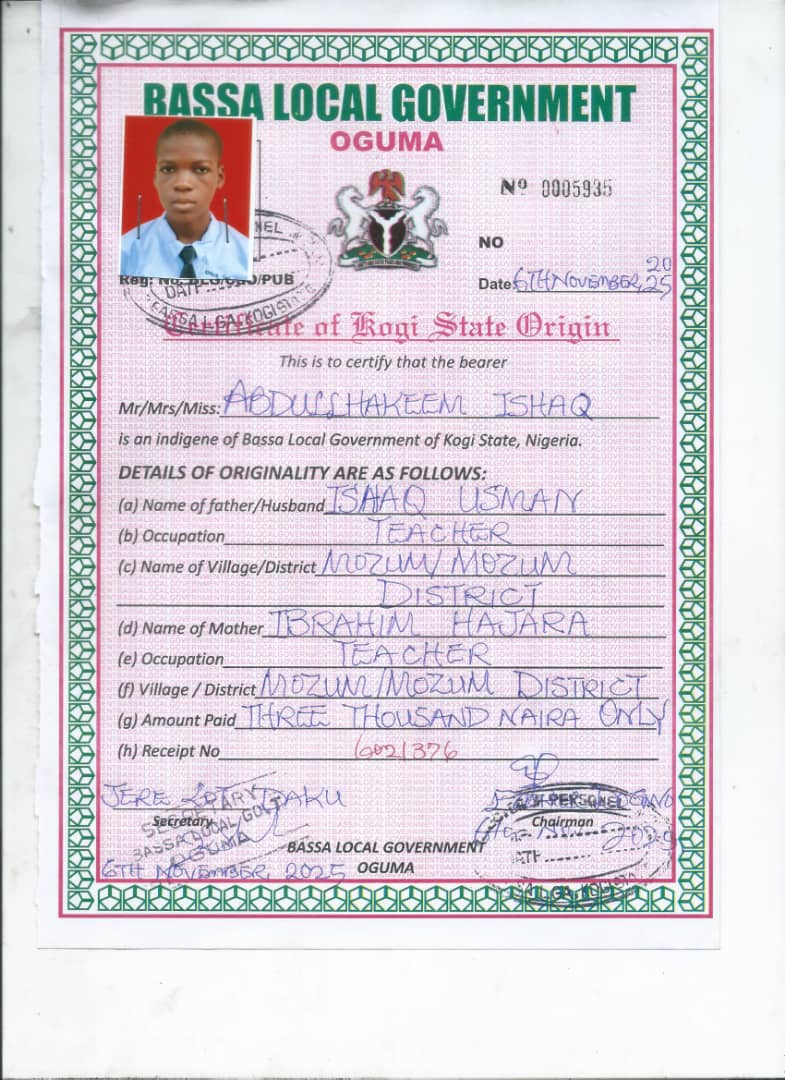 BASSA LOCAL GOVERNMENT
OGUMA
Nº 0005935
NO
Reg: No. PUB
Date: 6TH NOVEMBER, 2025
Certificate of Kogi State Origin
This is to certify that the bearer
Mr/Mrs/Miss: ABDULLHAKEEM ISHAQ
is an indigene of Bassa Local Government of Kogi State, Nigeria.
DETAILS OF ORIGINALITY ARE AS FOLLOWS:
(a) Name of father/Husband ISHAQ USMAN
(b) Occupation TEACHER
(c) Name of Village/District MOZUM/MOZUM
DISTRICT
(d) Name of Mother IBRAHIM HAJARA
(e) Occupation TEACHER
(f) Village / District MOZUM/MOZUM DISTRICT
(g) Amount Paid THREE THOUSAND NAIRA ONLY
(h) Receipt No
JERE
Secretary
SECRETARY
BASSA LOCAL GOVT
OGUMA
6TH NOVEMBER, 2025
BASSA LOCAL GOVERNMENT
OGUMA
Chairman
PERSONEL